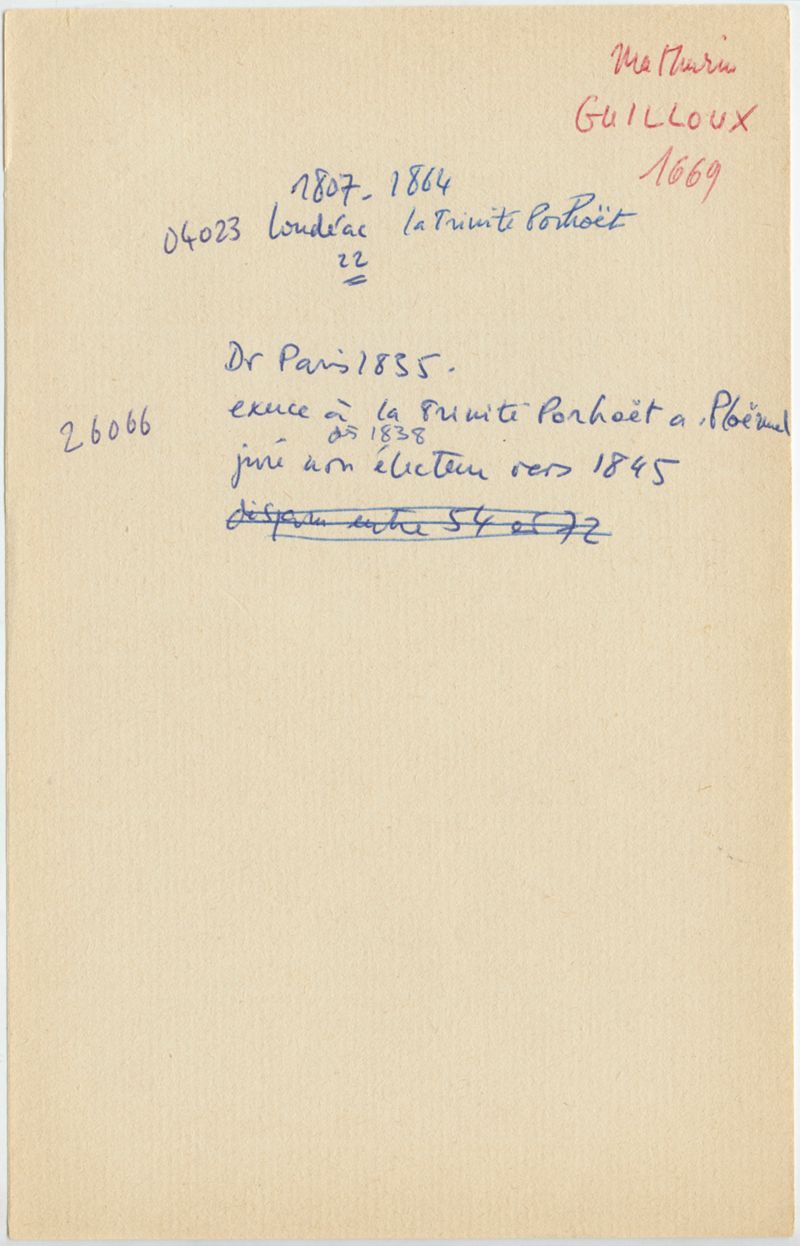 Mathurin
GUILLOUX
1669
1807 - 1864
04023 Loudéac la Trinité Porhoët
22
Dr Paris 1835.
26066
exerce à la Trinité Porhoët a. Ploërmel
dès 1838
juré non électeur vers 1845
disparu entre 54 et 72